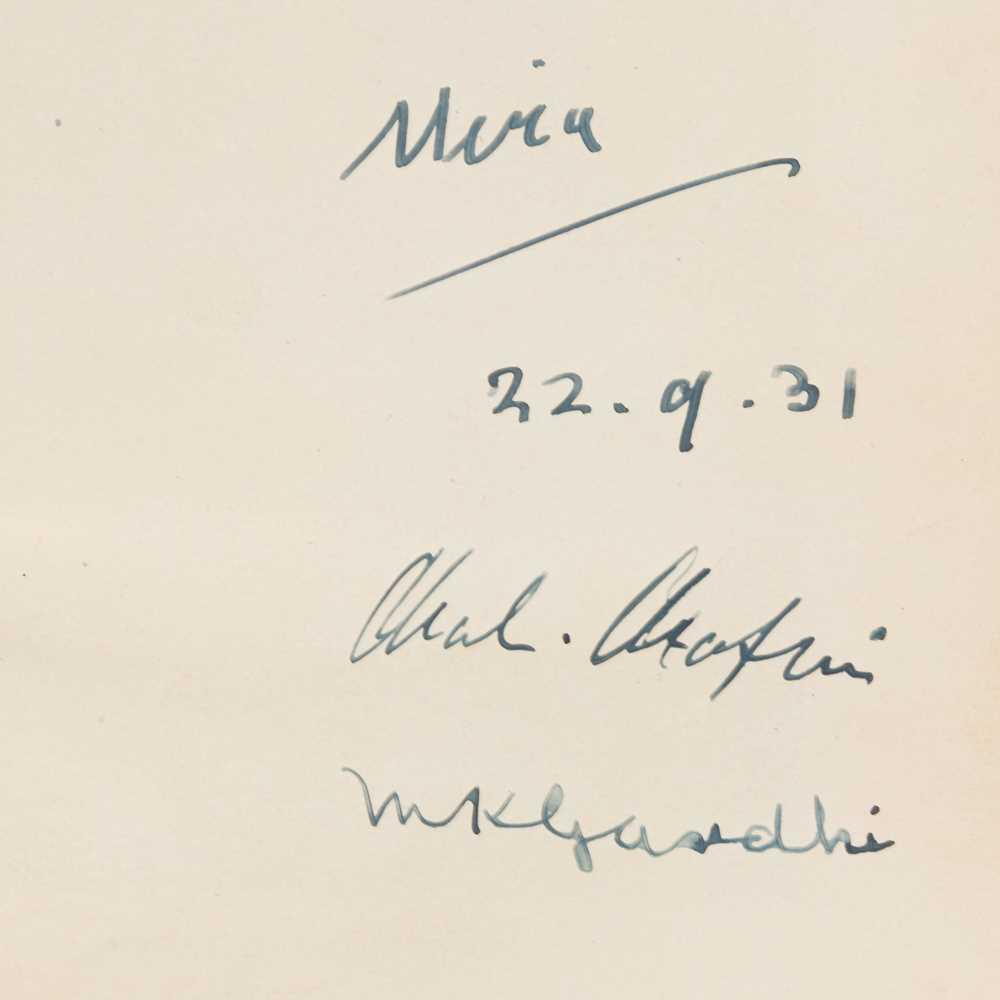 Mira
22.9.31
Chas. Chaplin
MKGandhi